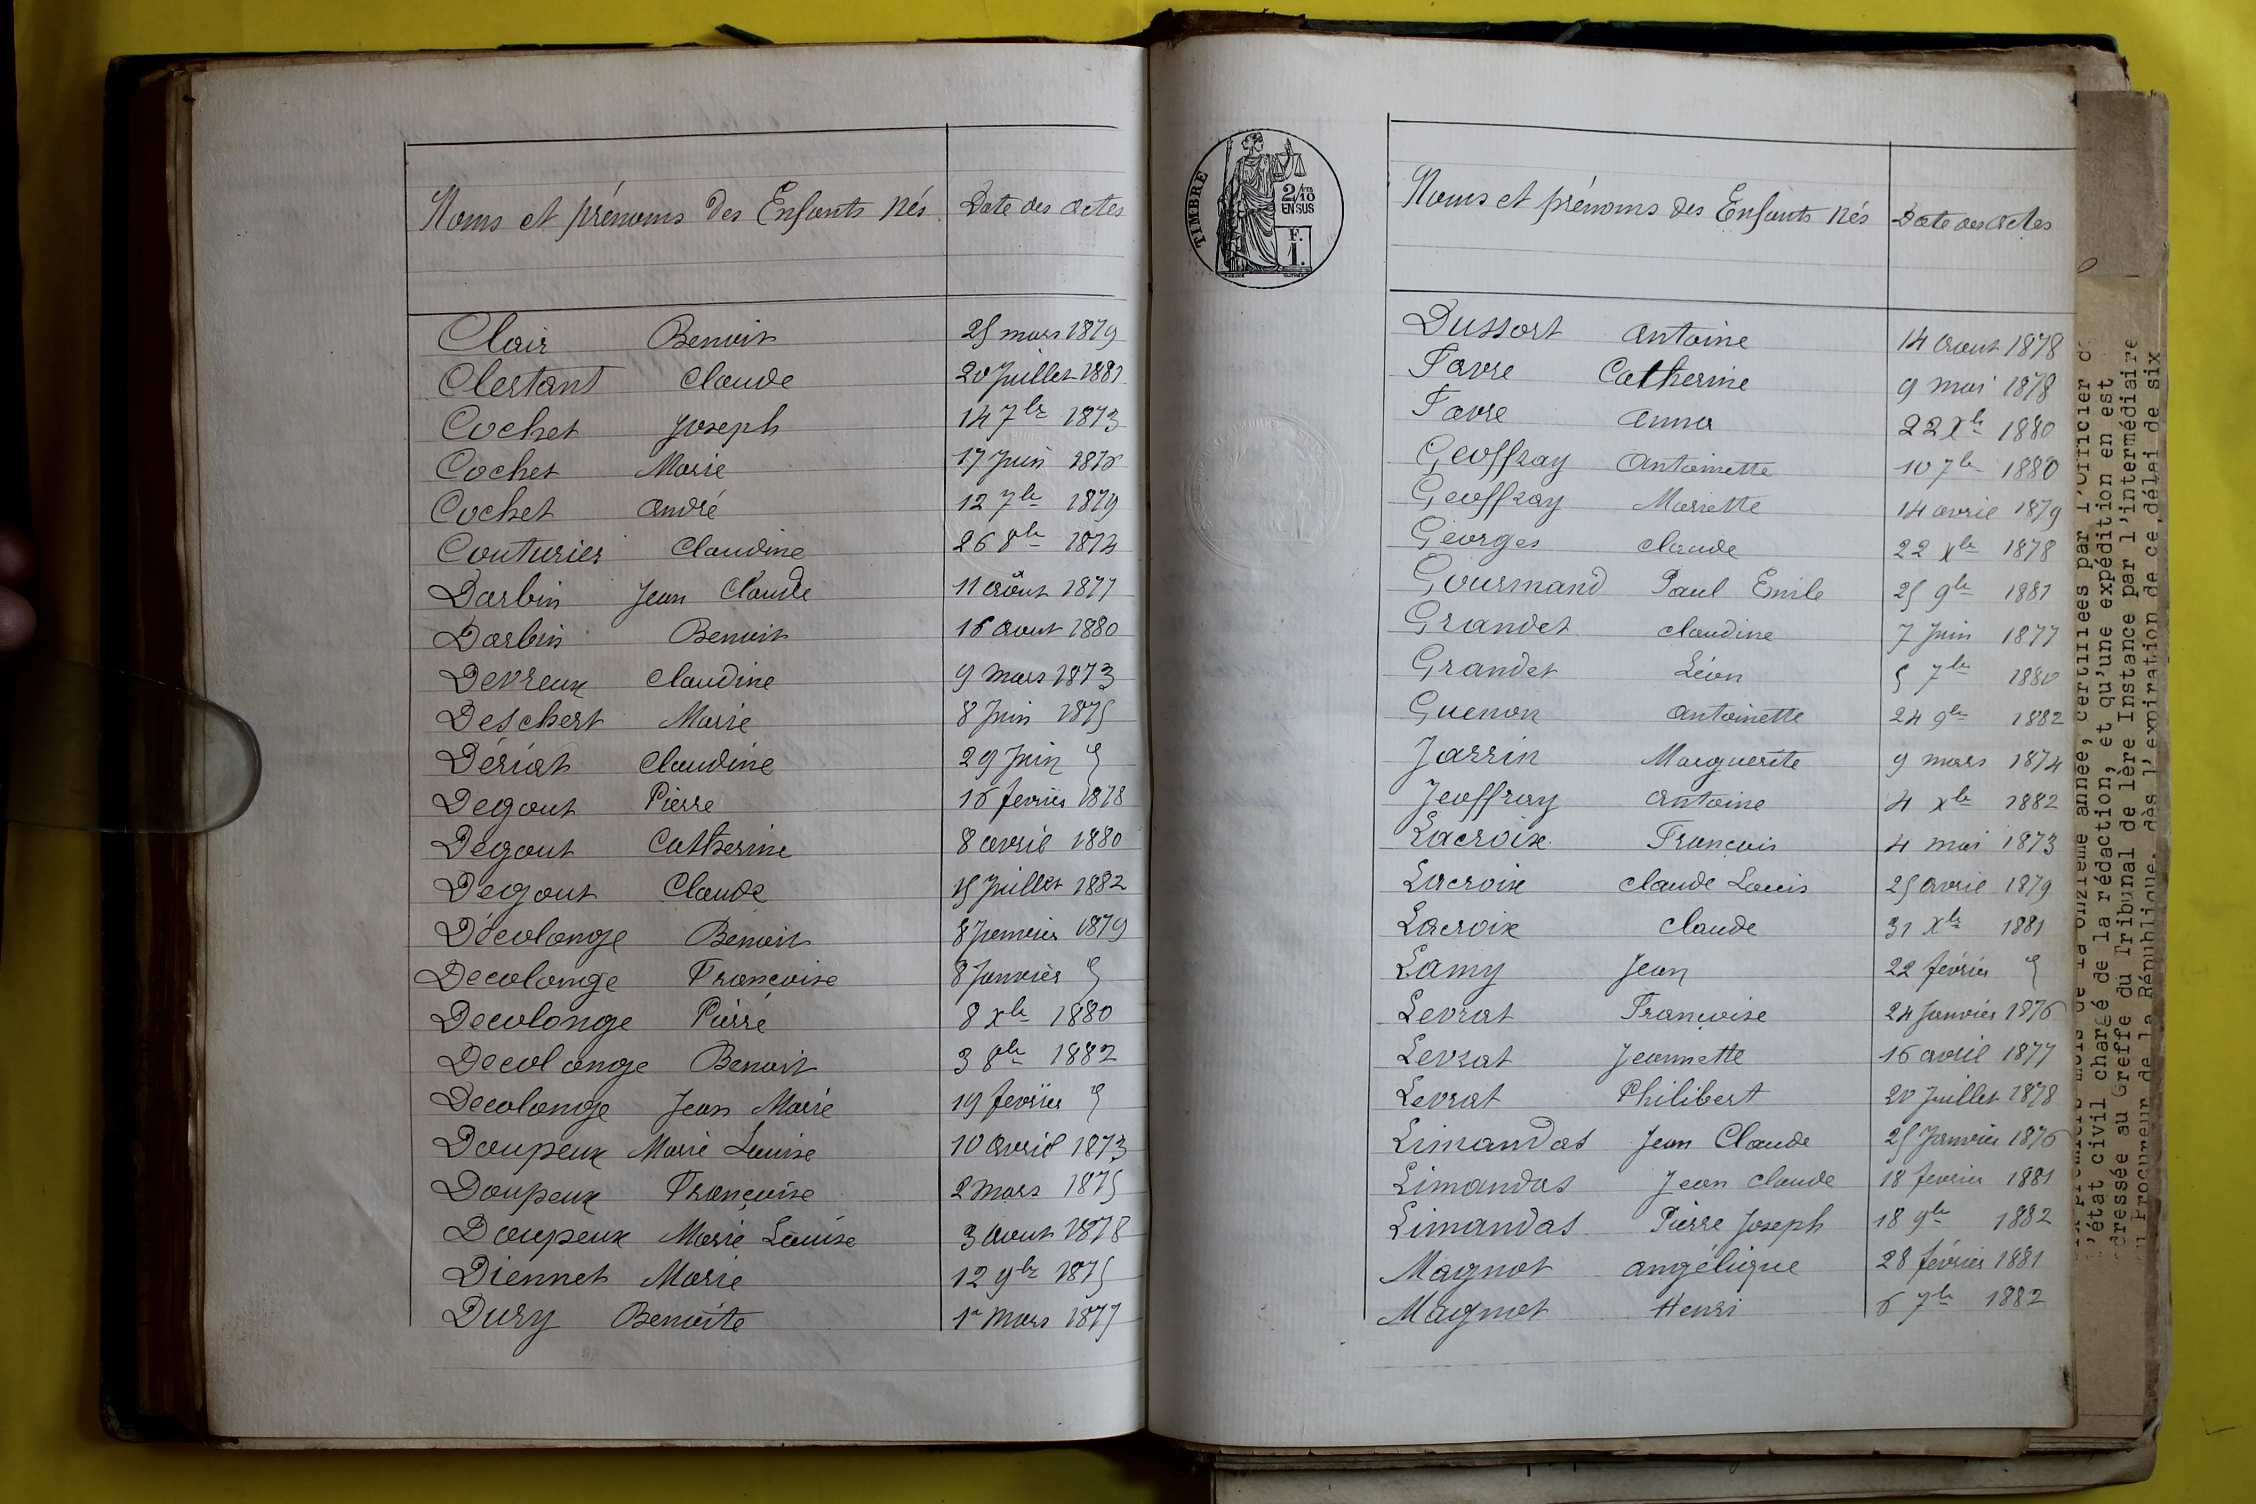 Noms et prénoms des Enfants nés Date des actes
Clair Benoit 25 mars 1879
Clertant Claude 20 Juillet 1881
Cochet Joseph 14 7bre 1873
Cochet Marie 17 Juin 1876
Cochet André 12 7bre 1879
Couturier Claudine 26 8bre 1874
Darbin Jean Claude 11 août 1877
Darbin Benoit 16 aout 1880
Devreux Claudine 9 mars 1873
Deschert Marie 8 Juin 1875
Dériat Claudine 29 Juin "
Degout Pierre 16 fevrier 1878
Degout Catherine 8 avril 1880
Degout Claude 15 Juillet 1882
Décolonge Benoit 8 Janvier 1879
Decolonge Françoise 8 Janvier "
Decolonge Pierre 8 xbre 1880
Decolonge Benoit 3 8bre 1882
Decolonge Jean Marie 19 fevrier "
Doupeux Marie Louise 10 avril 1873
Doupeux Françoise 2 mars 1875
Doupeux Marie Louise 3 aout 1878
Diennet Marie 12 9bre 1875
Dury Benoite 1er mars 1877
TIMBRE
2/10
EN SUS
F.
1.
Noms et prénoms des Enfants nés Date des actes
Dussort antoine 14 aout 1878
Favre Catherine 9 mai 1878
Favre anna 22 Xbre 1880
Geoffray antoinette 10 7bre 1880
Geoffray Mariette 14 avril 1879
Georges claude 22 xbre 1878
Gourmand Paul Emile 25 9bre 1881
Grandet claudine 7 Juin 1877
Grandet Léon 5 7bre 1880
Guenon antoinette 24 9bre 1882
Jarrin Marguerite 9 mars 1874
Jeoffray antoine 4 xbre 1882
Lacroix François 4 mai 1873
Lacroix claude Louis 25 avril 1879
Lacroix claude 31 Xbre 1881
Lamy Jean 22 février "
Levrat Françoise 24 Janvier 1876
Levrat Jeannette 16 avril 1877
Levrat Philibert 20 Juillet 1878
Limandas Jean Claude 25 Janvier 1876
Limandas Jean claude 18 fevrier 1881
Limandas Pierre Joseph 18 9bre 1882
Magnot angélique 28 février 1881
Magnot Henri 6 7bre 1882
de la onzième année, certifiées par l'Officier d
l'état civil chargé de la rédaction, et qu'une expédition en est
dressée au Greffe du Tribunal de 1ère Instance par l'intermédiaire
Procureur de la République, dès l'expiration de ce délai de six